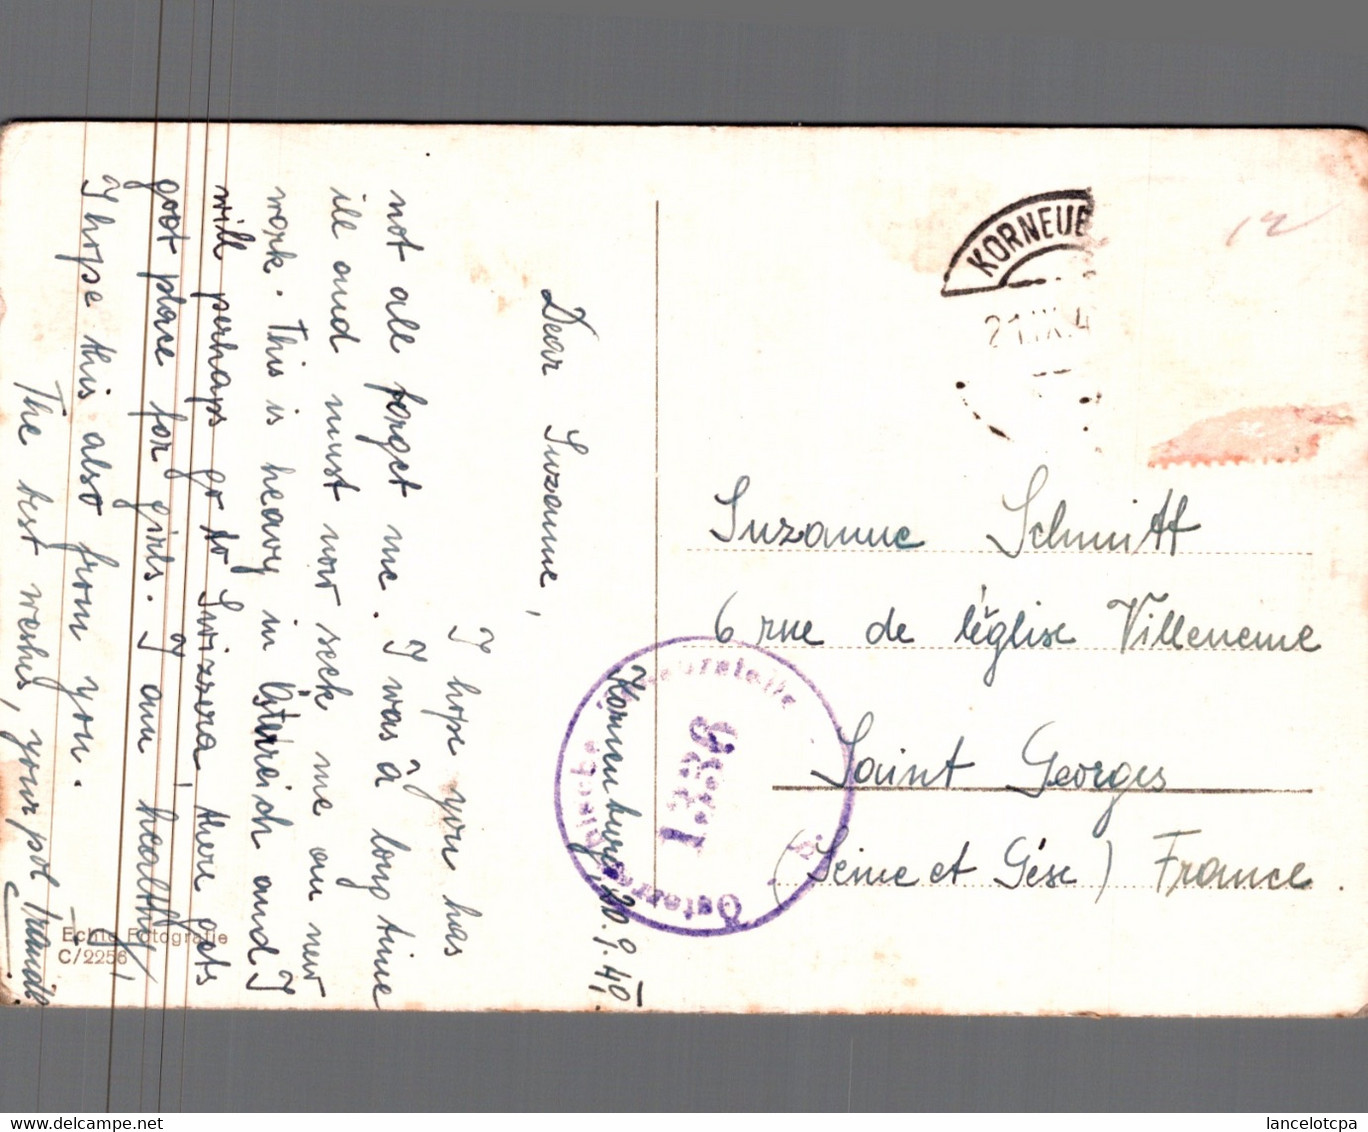 Korneuburg, 20.9.49
Dear Suzanne,
I hope you has
not all forget me. I was a long time
ill and must now seek me an new
work. This is heavy in Österreich and I
will perhaps go to Swizzera, there gets
goot place for girls. I am healthy,
I hope this also from you.
The best weshes, your pol Traudl
Echte Fotografie
C/2256
KORNEUB
21.IX.4
12
Suzanne Schmitt
6 rue de l'église Villeneuve
Saint Georges
(Seine et Oise) France.
Österreichische Zensurstelle
1336
lancelotcpa